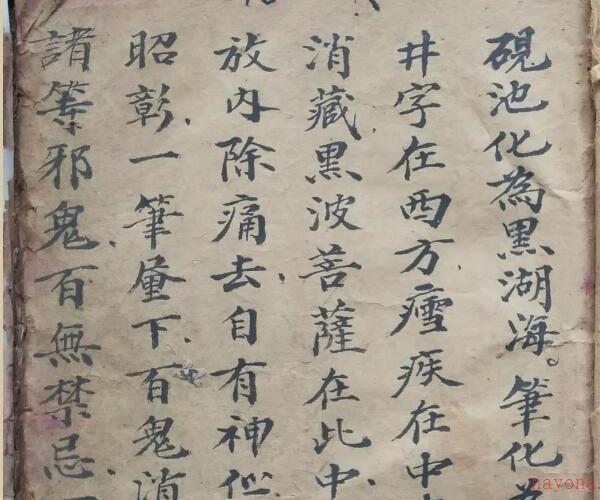 硯池化為黑湖海。筆化為
井字在西方瘧疾在中
消藏黑波菩薩在此中
放內除痛去自有神
昭彰一筆量下百鬼消
諸等邪鬼百無禁忌
nayona